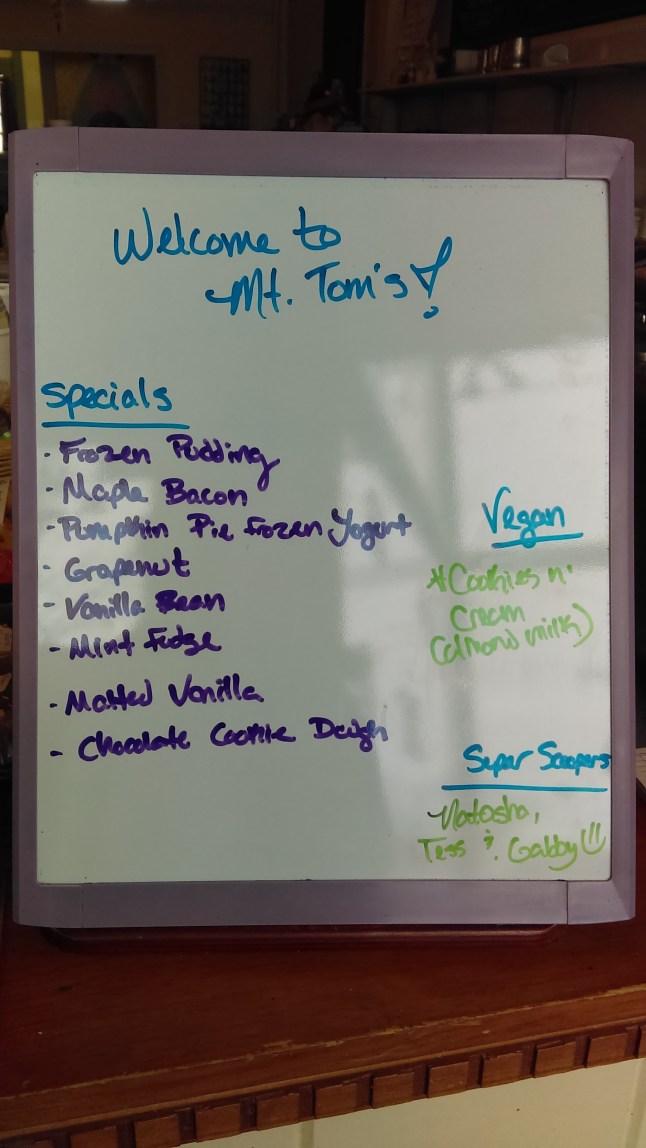 Welcome to
Mt. Tom's!
Specials
- Frozen Pudding
- Maple Bacon
- Pumpkin Pie Frozen Yogurt
- Grapenut
- Vanilla Bean
- Mint Fudge
- Malted Vanilla
- Chocolate Cookie Dough
Vegan
*Cookies n'
Cream
(almond milk)
Super Scoopers
Natasha,
Tess & Gabby